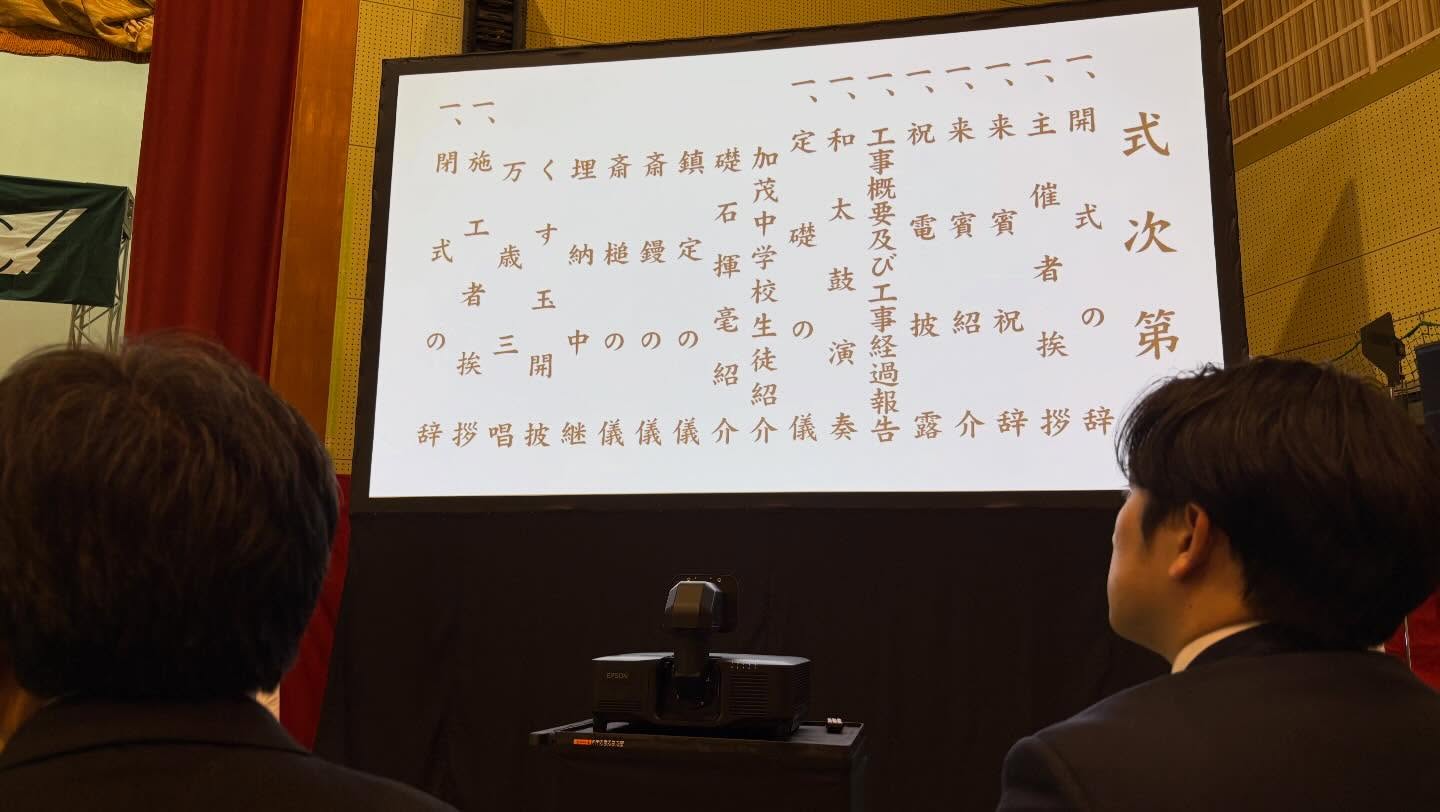 式次第
一、開式の辞
一、主催者挨拶
一、来賓祝辞
一、来賓紹介
一、祝電披露
一、工事概要及び工事経過報告
一、和太鼓演奏
一、定礎の儀
加茂中学校生徒紹介
礎石揮毫紹介
鎮定の儀
斎鏝の儀
斎槌の儀
埋納中継
くす玉開披
万歳三唱
一、施工者挨拶
一、閉式の辞
EPSON